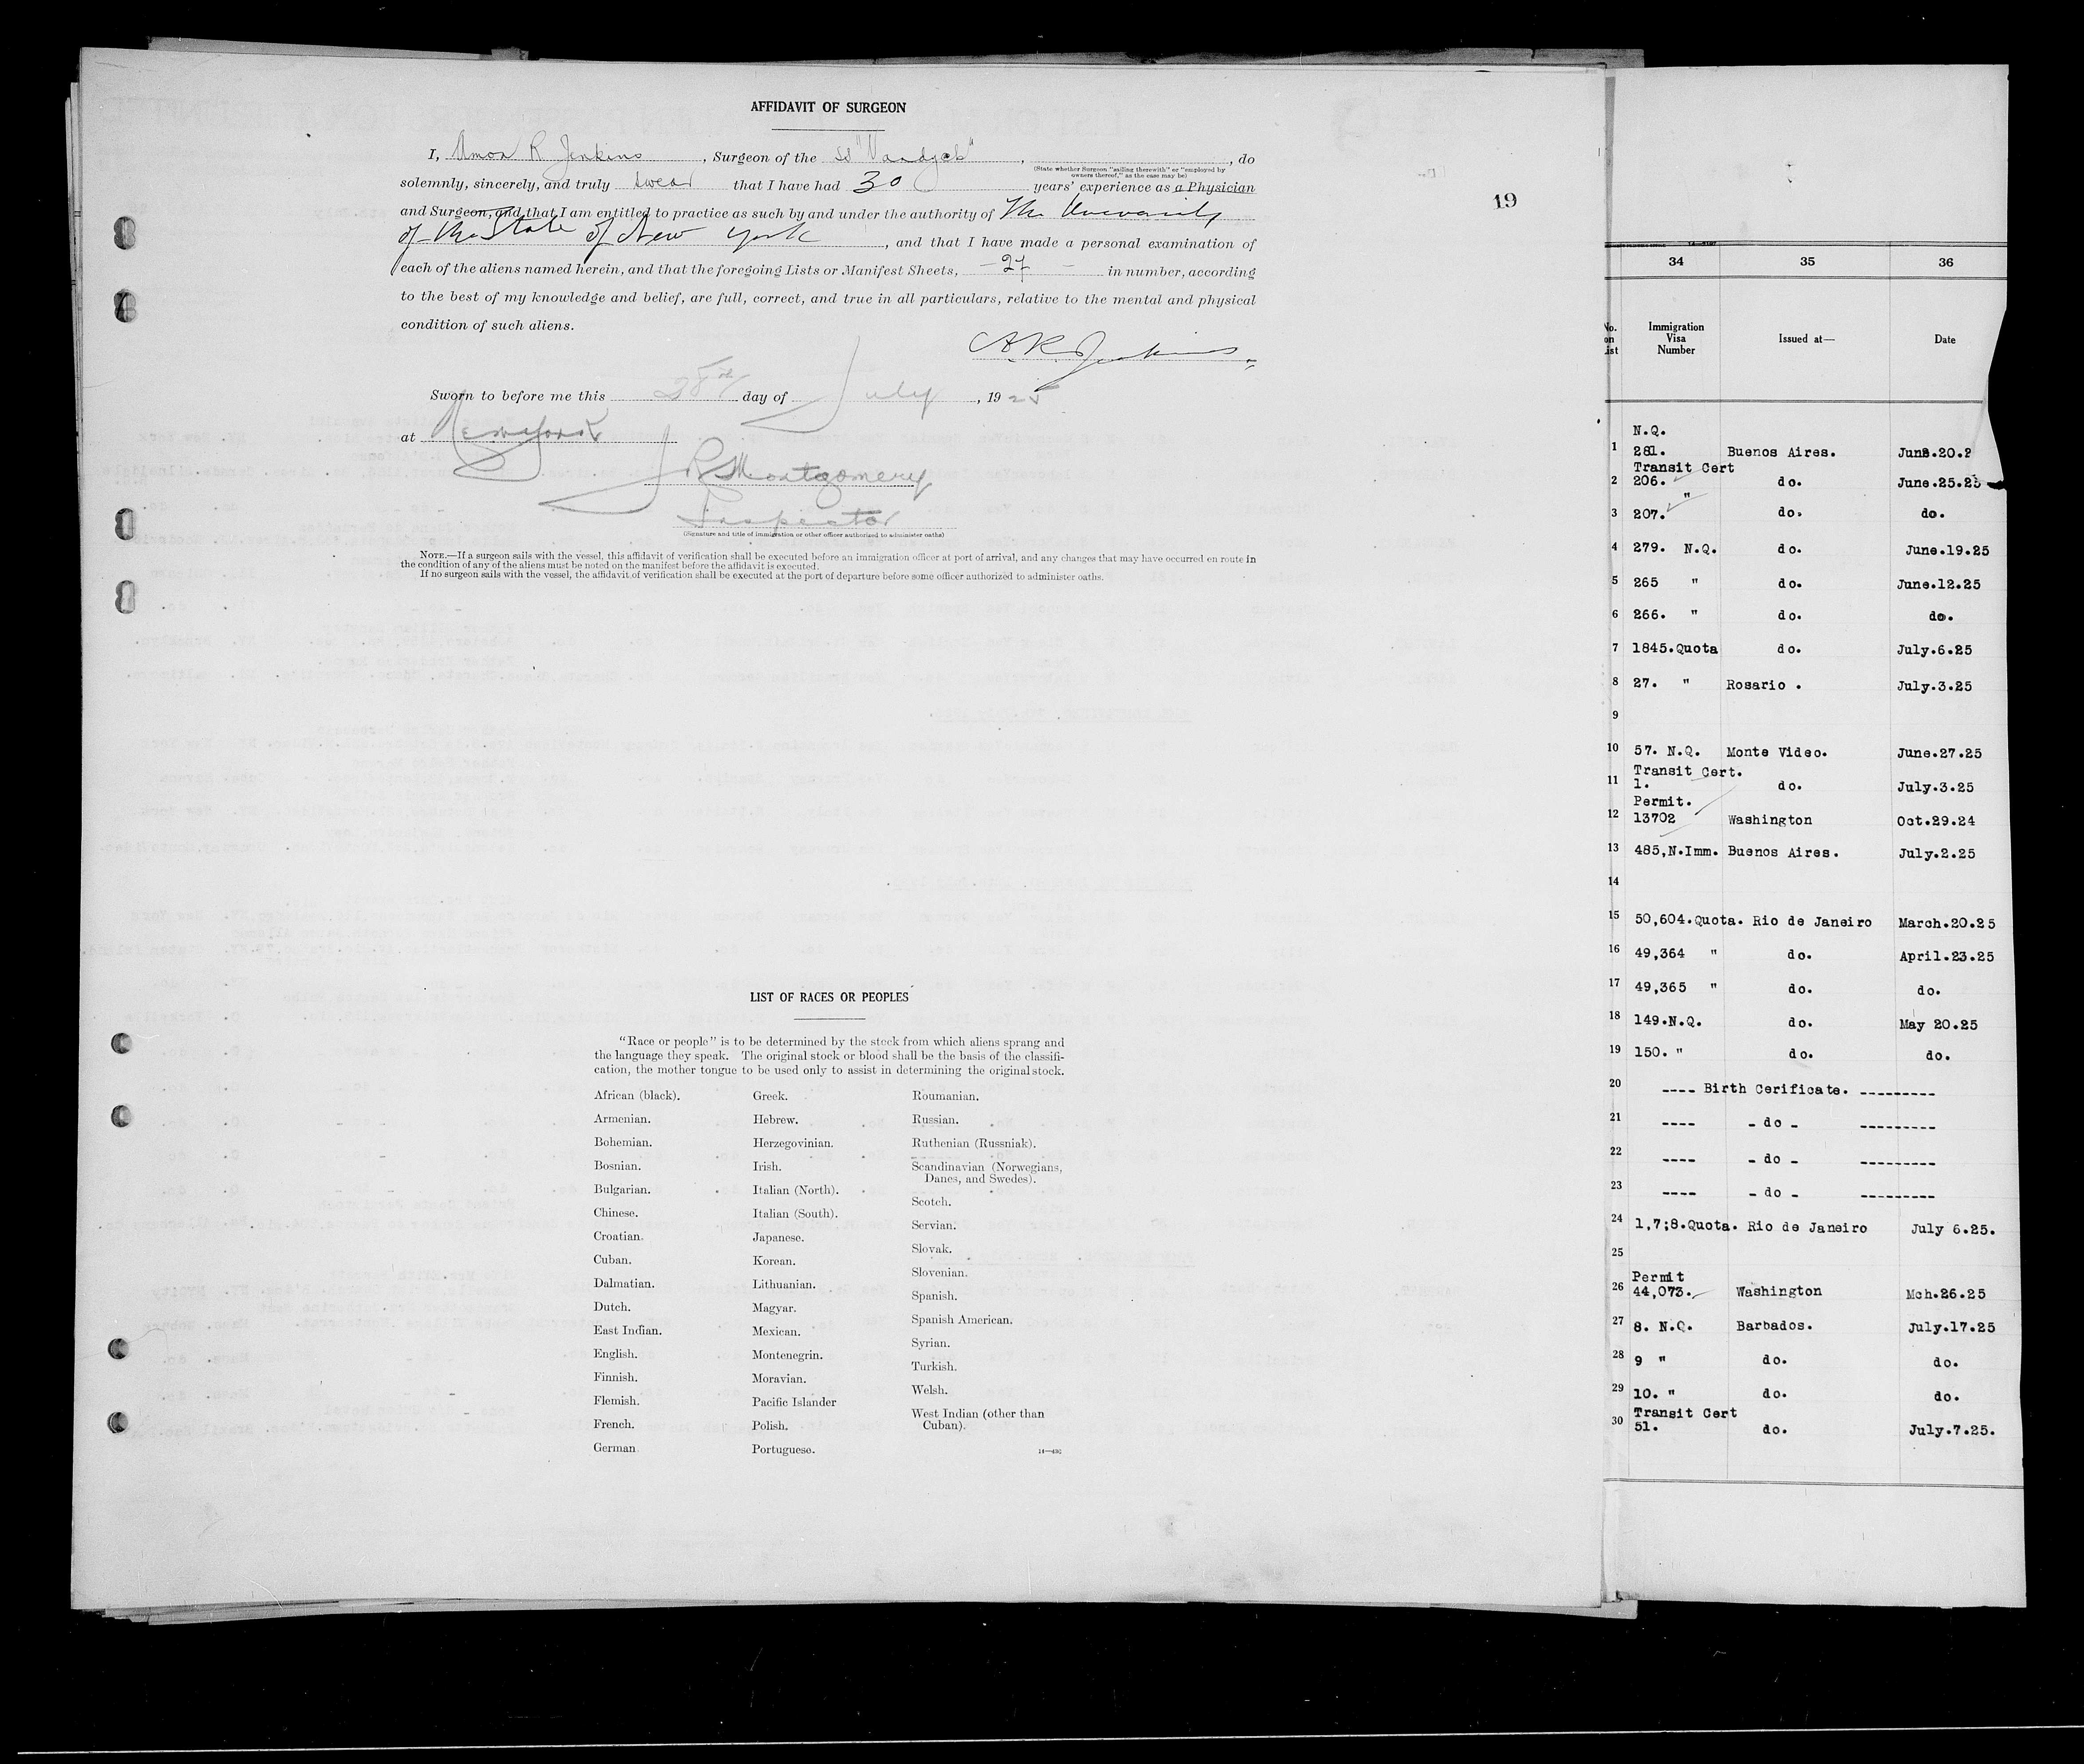 AFFIDAVIT OF SURGEON
I, Amos R Jenkins, Surgeon of the SS "Vandyck", , do
(State whether Surgeon "sailing therewith" or "employed by owners thereof," as the case may be)
solemnly, sincerely, and truly swear that I have had 30 years' experience as a Physician
and Surgeon, and that I am entitled to practice as such by and under the authority of The University
of the State of New York, and that I have made a personal examination of
each of the aliens named herein, and that the foregoing Lists or Manifest Sheets, -27- in number, according
to the best of my knowledge and belief, are full, correct, and true in all particulars, relative to the mental and physical
condition of such aliens.
A.R. Jenkins
Sworn to before me this 28th day of July, 1925
at New York
J R Montgomery
Inspector
(Signature and title of immigration or other officer authorized to administer oaths)
NOTE.—If a surgeon sails with the vessel, this affidavit of verification shall be executed before an immigration officer at port of arrival, and any changes that may have occurred en route in
the condition of any of the aliens must be noted on the manifest before the affidavit is executed.
If no surgeon sails with the vessel, the affidavit of verification shall be executed at the port of departure before some officer authorized to administer oaths.
19
LIST OF RACES OR PEOPLES
"Race or people" is to be determined by the stock from which aliens sprang and
the language they speak. The original stock or blood shall be the basis of the classifi-
cation, the mother tongue to be used only to assist in determining the original stock.
African (black).
Armenian.
Bohemian.
Bosnian.
Bulgarian.
Chinese.
Croatian.
Cuban.
Dalmatian.
Dutch.
East Indian.
English.
Finnish.
Flemish.
French.
German
Greek.
Hebrew.
Herzegovinian.
Irish.
Italian (North).
Italian (South).
Japanese.
Korean.
Lithuanian.
Magyar.
Mexican.
Montenegrin.
Moravian.
Pacific Islander
Polish.
Portuguese.
Roumanian.
Russian.
Ruthenian (Russniak).
Scandinavian (Norwegians,
Danes, and Swedes).
Scotch.
Servian.
Slovak.
Slovenian.
Spanish.
Spanish American.
Syrian.
Turkish.
Welsh.
West Indian (other than
Cuban).
34 35 36
No. on List
Immigration Visa Number
Issued at—
Date
N.Q.
1 281. Buenos Aires. June.20.2
Transit Cert
2 206. do. June.25.25
"
3 207. do. do.
4 279. N.Q. do. June.19.25
5 265 " do. June.12.25
6 266. " do. do.
7 1845.Quota do. July.6.25
8 27. " Rosario . July.3.25
9
10 57. N.Q. Monte Video. June.27.25
Transit Cert.
11 1. do. July.3.25
Permit.
12 13702 Washington Oct.29.24
13 485,N.Imm. Buenos Aires. July.2.25
14
15 50,604.Quota. Rio de Janeiro March.20.25
16 49,364 " do. April.23.25
17 49,365 " do. do.
18 149.N.Q. do. May 20.25
19 150. " do. do.
20 ---- Birth Cerificate. ---------
21 ---- - do - ---------
22 ---- - do - ---------
23 ---- - do - ---------
24 1,7;8.Quota. Rio de Janeiro July 6.25.
25
Permit
26 44,073. Washington Mch.26.25
27 8. N.Q. Barbados. July.17.25
28 9 " do. do.
29 10. " do. do.
Transit Cert
30 51. do. July.7.25.